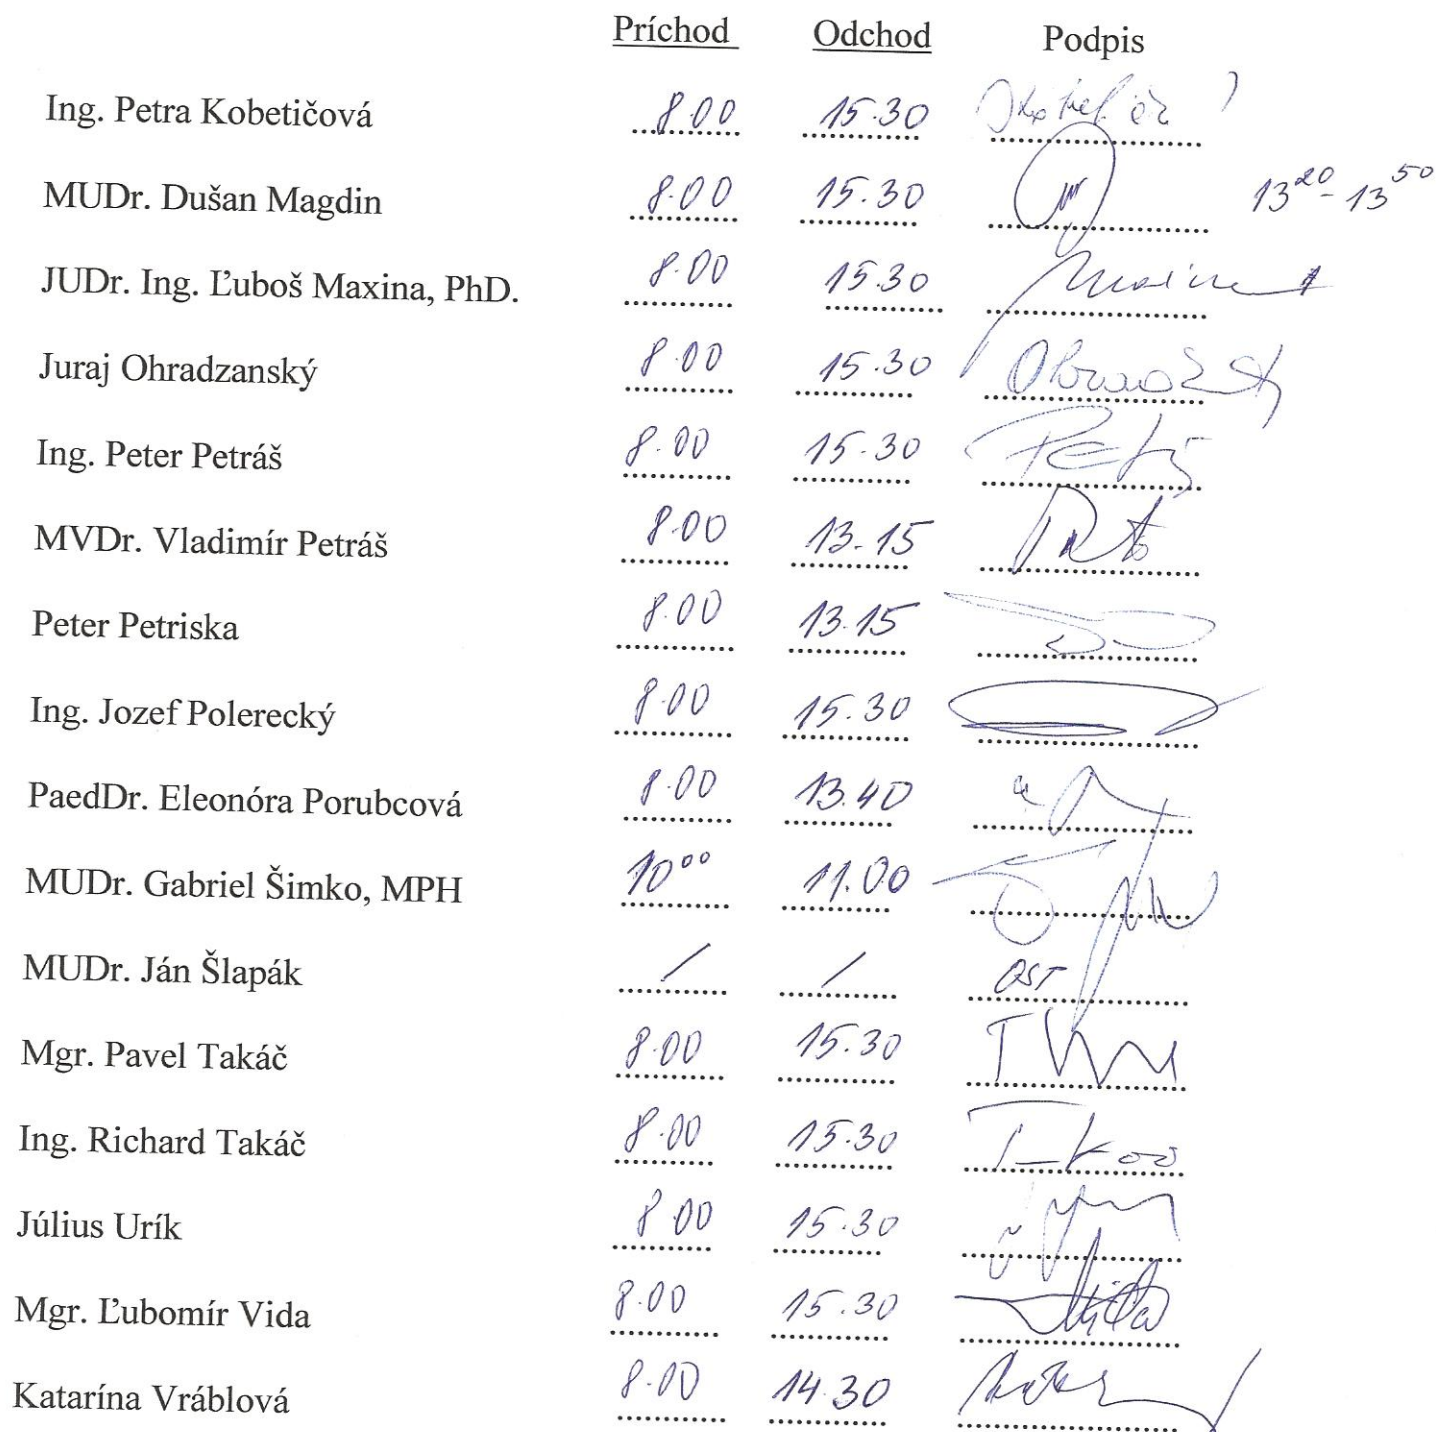 Príchod Odchod Podpis
Ing. Petra Kobetičová 8.00 15.30
MUDr. Dušan Magdin 8.00 15.30 13²⁰-13⁵⁰
JUDr. Ing. Ľuboš Maxina, PhD. 8.00 15.30
Juraj Ohradzanský 8.00 15.30
Ing. Peter Petráš 8.00 15.30
MVDr. Vladimír Petráš 8.00 13.15
Peter Petriska 8.00 13.15
Ing. Jozef Polerecký 8.00 15.30
PaedDr. Eleonóra Porubcová 8.00 13.40
MUDr. Gabriel Šimko, MPH 10⁰⁰ 11.00
MUDr. Ján Šlapák / /
Mgr. Pavel Takáč 8.00 15.30
Ing. Richard Takáč 8.00 15.30
Július Urík 8.00 15.30
Mgr. Ľubomír Vida 8.00 15.30
Katarína Vráblová 8.00 14.30